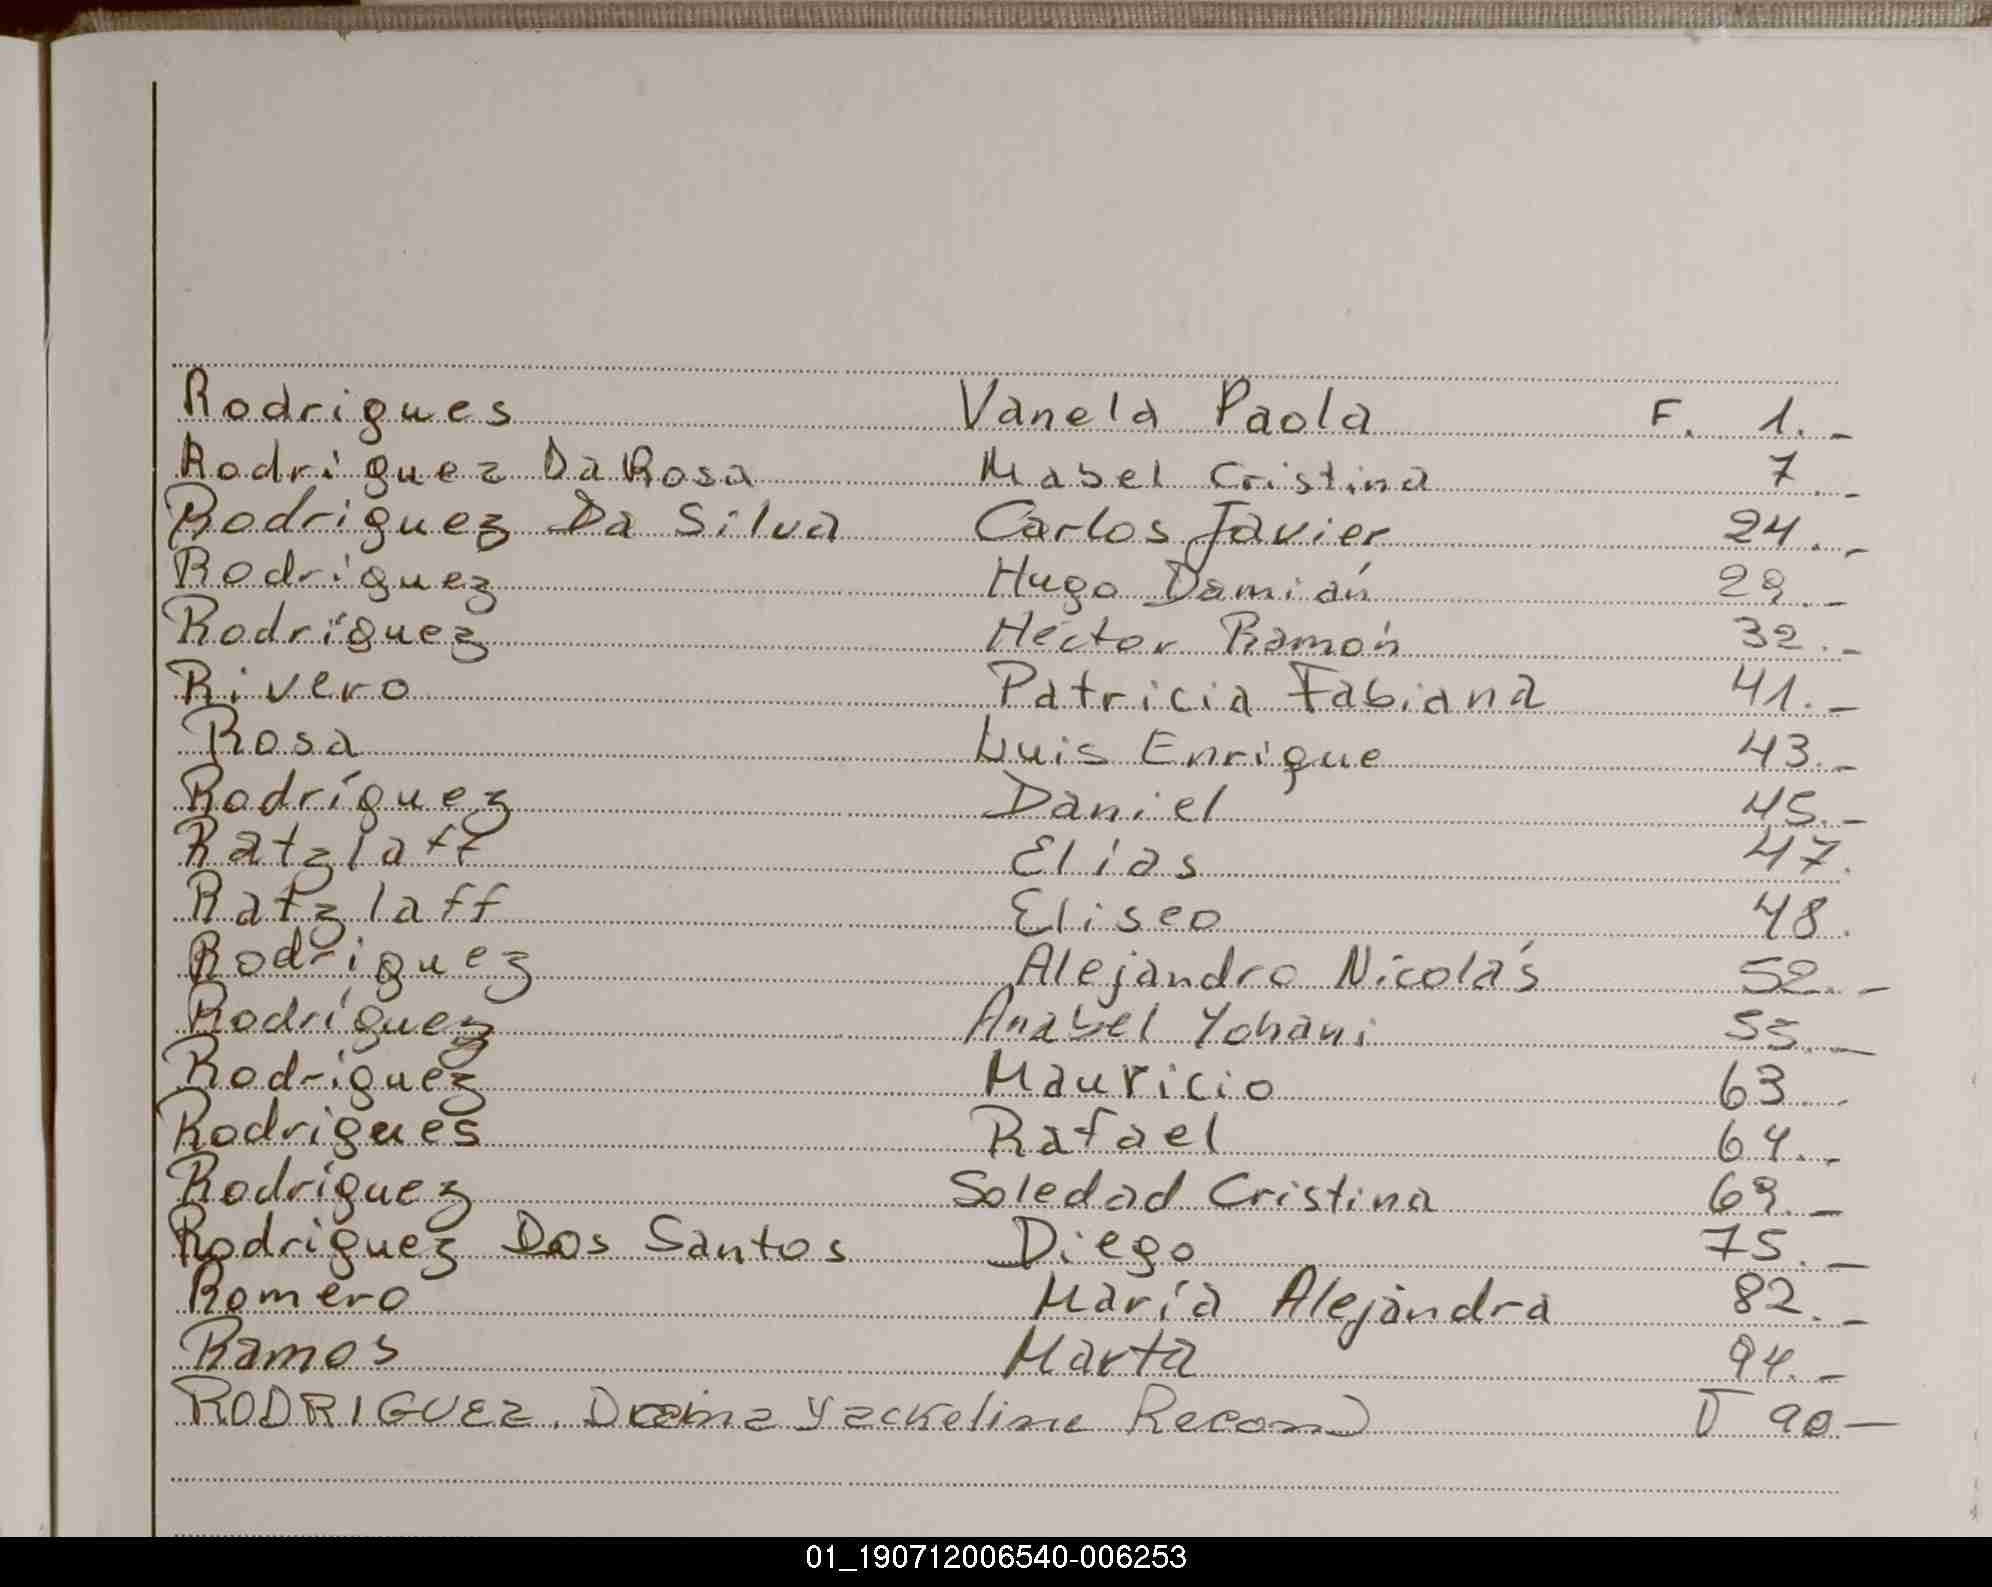 Rodrigues Vanela Paola F. 1.-
Rodriguez Da Rosa Mabel Cristina 7.-
Rodriguez Da Silva Carlos Javier 24.-
Rodriguez Hugo Damián 29.-
Rodriguez Héctor Ramón 32.-
Rivero Patricia Fabiana 41.-
Rosa Luis Enrique 43.-
Rodríguez Daniel 45.-
Ratzlaff Elías 47.
Ratzlaff Eliseo 48.
Rodriguez Alejandro Nicolás 52.-
Rodríguez Anabel Yohani 55.-
Rodriguez Mauricio 63.-
Rodrigues Rafael 64.-
Rodríguez Soledad Cristina 69.-
Rodriguez Dos Santos Diego 75.-
Romero María Alejandra 82.-
Ramos Marta 94.-
RODRIGUEZ. Yackeline 90-
01_190712006540-006253